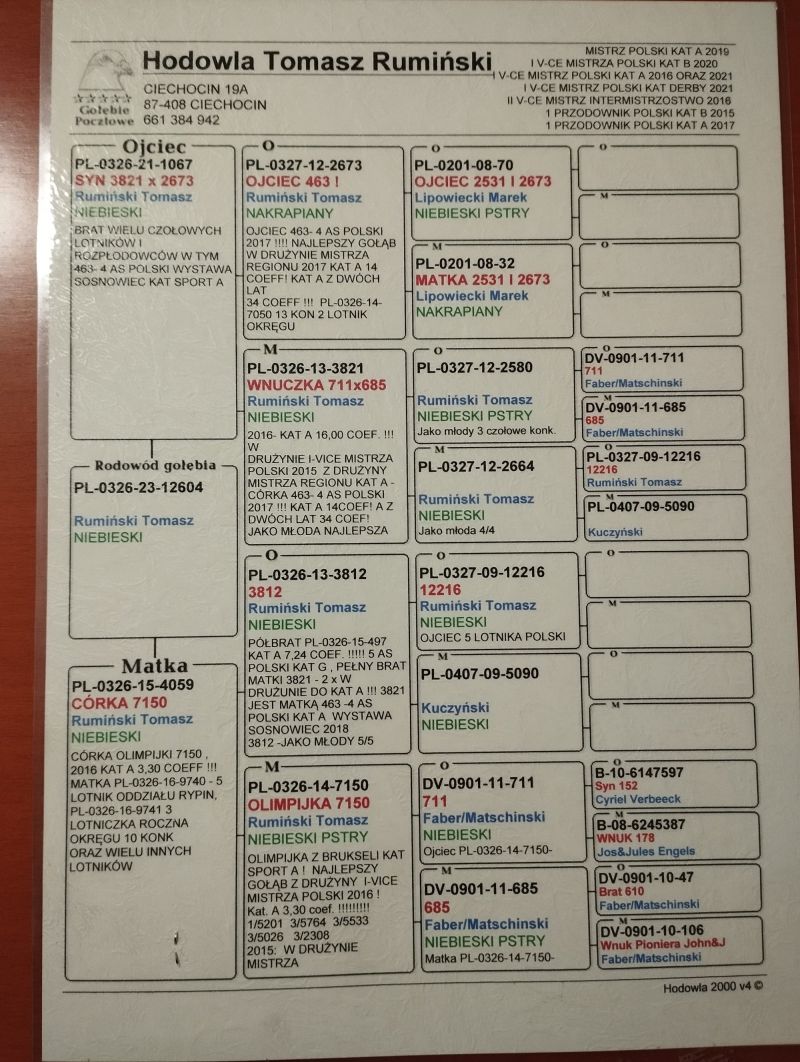 Hodowla Tomasz Rumiński
CIECHOCIN 19A
87-408 CIECHOCIN
661 384 942
Gołębie
Pocztowe
MISTRZ POLSKI KAT A 2019
I V-CE MISTRZA POLSKI KAT B 2020
I V-CE MISTRZ POLSKI KAT A 2016 ORAZ 2021
I V-CE MISTRZ POLSKI KAT DERBY 2021
II V-CE MISTRZ INTERMISTRZOSTWO 2016
1 PRZODOWNIK POLSKI KAT B 2015
1 PRZODOWNIK POLSKI KAT A 2017
Ojciec
PL-0326-21-1067
SYN 3821 x 2673
Rumiński Tomasz
NIEBIESKI
BRAT WIELU CZOŁOWYCH
LOTNIKÓW I
ROZPŁODOWCÓW W TYM
463- 4 AS POLSKI WYSTAWA
SOSNOWIEC KAT SPORT A
Rodowód gołębia
PL-0326-23-12604
Rumiński Tomasz
NIEBIESKI
Matka
PL-0326-15-4059
CÓRKA 7150
Rumiński Tomasz
NIEBIESKI
CÓRKA OLIMPIJKI 7150 ,
2016 KAT A 3,30 COEFF !!!
MATKA PL-0326-16-9740 - 5
LOTNIK ODDZIAŁU RYPIN,
PL-0326-16-9741 3
LOTNICZKA ROCZNA
OKRĘGU 10 KONK
ORAZ WIELU INNYCH
LOTNIKÓW
O
PL-0327-12-2673
OJCIEC 463 !
Rumiński Tomasz
NAKRAPIANY
OJCIEC 463- 4 AS POLSKI
2017 !!!! NAJLEPSZY GOŁĄB
W DRUŻYNIE MISTRZA
REGIONU 2017 KAT A 14
COEFF! KAT A Z DWÓCH
LAT
34 COEFF !!! PL-0326-14-
7050 13 KON 2 LOTNIK
OKRĘGU
M
PL-0326-13-3821
WNUCZKA 711x685
Rumiński Tomasz
NIEBIESKI
2016- KAT A 16,00 COEF. !!!
W
DRUŻYNIE I-VICE MISTRZA
POLSKI 2015 Z DRUŻYNY
MISTRZA REGIONU KAT A -
CÓRKA 463- 4 AS POLSKI
2017 !!! KAT A 14COEF! A Z
DWÓCH LAT 34 COEF!
JAKO MŁODA NAJLEPSZA
O
PL-0326-13-3812
3812
Rumiński Tomasz
NIEBIESKI
PÓŁBRAT PL-0326-15-497
KAT A 7,24 COEF. !!!!! 5 AS
POLSKI KAT G , PEŁNY BRAT
MATKI 3821 - 2 x W
DRUŻUNIE DO KAT A !!! 3821
JEST MATKĄ 463 -4 AS
POLSKI KAT A WYSTAWA
SOSNOWIEC 2018
3812 -JAKO MŁODY 5/5
M
PL-0326-14-7150
OLIMPIJKA 7150
Rumiński Tomasz
NIEBIESKI PSTRY
OLIMPIJKA Z BRUKSELI KAT
SPORT A ! NAJLEPSZY
GOŁĄB Z DRUŻYNY I-VICE
MISTRZA POLSKI 2016 !
Kat. A 3,30 coef. !!!!!!!!!
1/5201 3/5764 3/5533
3/5026 3/2308
2015: W DRUŻYNIE
MISTRZA
O
PL-0201-08-70
OJCIEC 2531 I 2673
Lipowiecki Marek
NIEBIESKI PSTRY
M
PL-0201-08-32
MATKA 2531 I 2673
Lipowiecki Marek
NAKRAPIANY
O
PL-0327-12-2580
Rumiński Tomasz
NIEBIESKI PSTRY
Jako młody 3 czołowe konk.
M
PL-0327-12-2664
Rumiński Tomasz
NIEBIESKI
Jako młoda 4/4
O
PL-0327-09-12216
12216
Rumiński Tomasz
NIEBIESKI
OJCIEC 5 LOTNIKA POLSKI
M
PL-0407-09-5090
Kuczyński
NIEBIESKI
O
DV-0901-11-711
711
Faber/Matschinski
NIEBIESKI
Ojciec PL-0326-14-7150-
M
DV-0901-11-685
685
Faber/Matschinski
NIEBIESKI PSTRY
Matka PL-0326-14-7150-
O
M
O
M
O
DV-0901-11-711
711
Faber/Matschinski
M
DV-0901-11-685
685
Faber/Matschinski
O
PL-0327-09-12216
12216
Rumiński Tomasz
M
PL-0407-09-5090
Kuczyński
O
M
O
M
O
B-10-6147597
Syn 152
Cyriel Verbeeck
M
B-08-6245387
WNUK 178
Jos&Jules Engels
O
DV-0901-10-47
Brat 610
Faber/Matschinski
M
DV-0901-10-106
Wnuk Pioniera John&J
Faber/Matschinski
Hodowla 2000 v4 ©